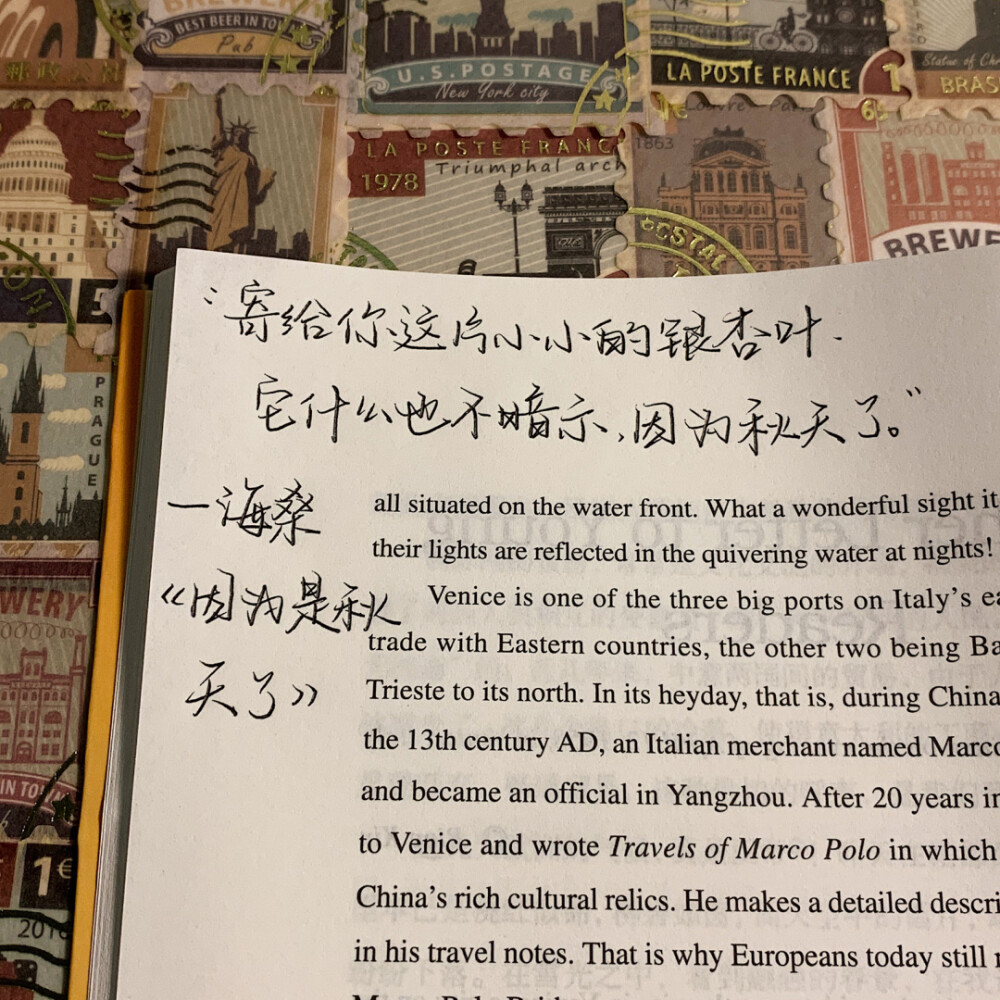 BEST BEER IN TOWN
Pub
U.S.POSTAGE
New York city
LA POSTE FRANCE
1
Statue of
BRAS
LA POSTE FRANC
Triumphal arch
1978
1863
BREWE
PRAGUE
WERY
IN TO
1€
“寄给你这片小小的银杏叶.
它什么也不暗示,因为秋天了。”
—海桑
《因为是秋
天了》
all situated on the water front. What a wonderful sight it
their lights are reflected in the quivering water at nights!
Venice is one of the three big ports on Italy’s ea
trade with Eastern countries, the other two being Ba
Trieste to its north. In its heyday, that is, during China
the 13th century AD, an Italian merchant named Marco
and became an official in Yangzhou. After 20 years in
to Venice and wrote Travels of Marco Polo in which
China’s rich cultural relics. He makes a detailed descri
in his travel notes. That is why Europeans today still